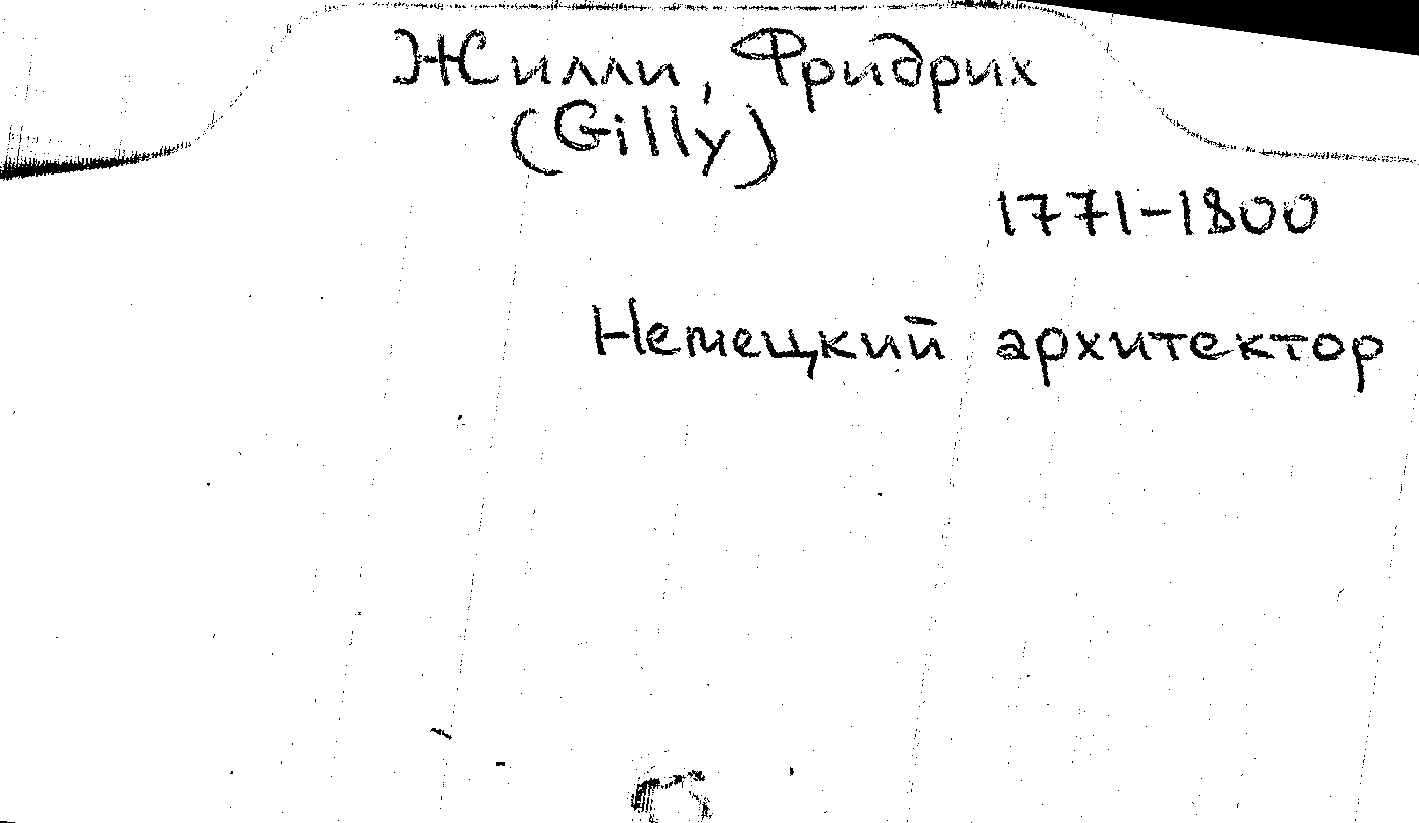 Жилли, Фридрих
(Gilly)
1771-1800
Немецкий архитектор